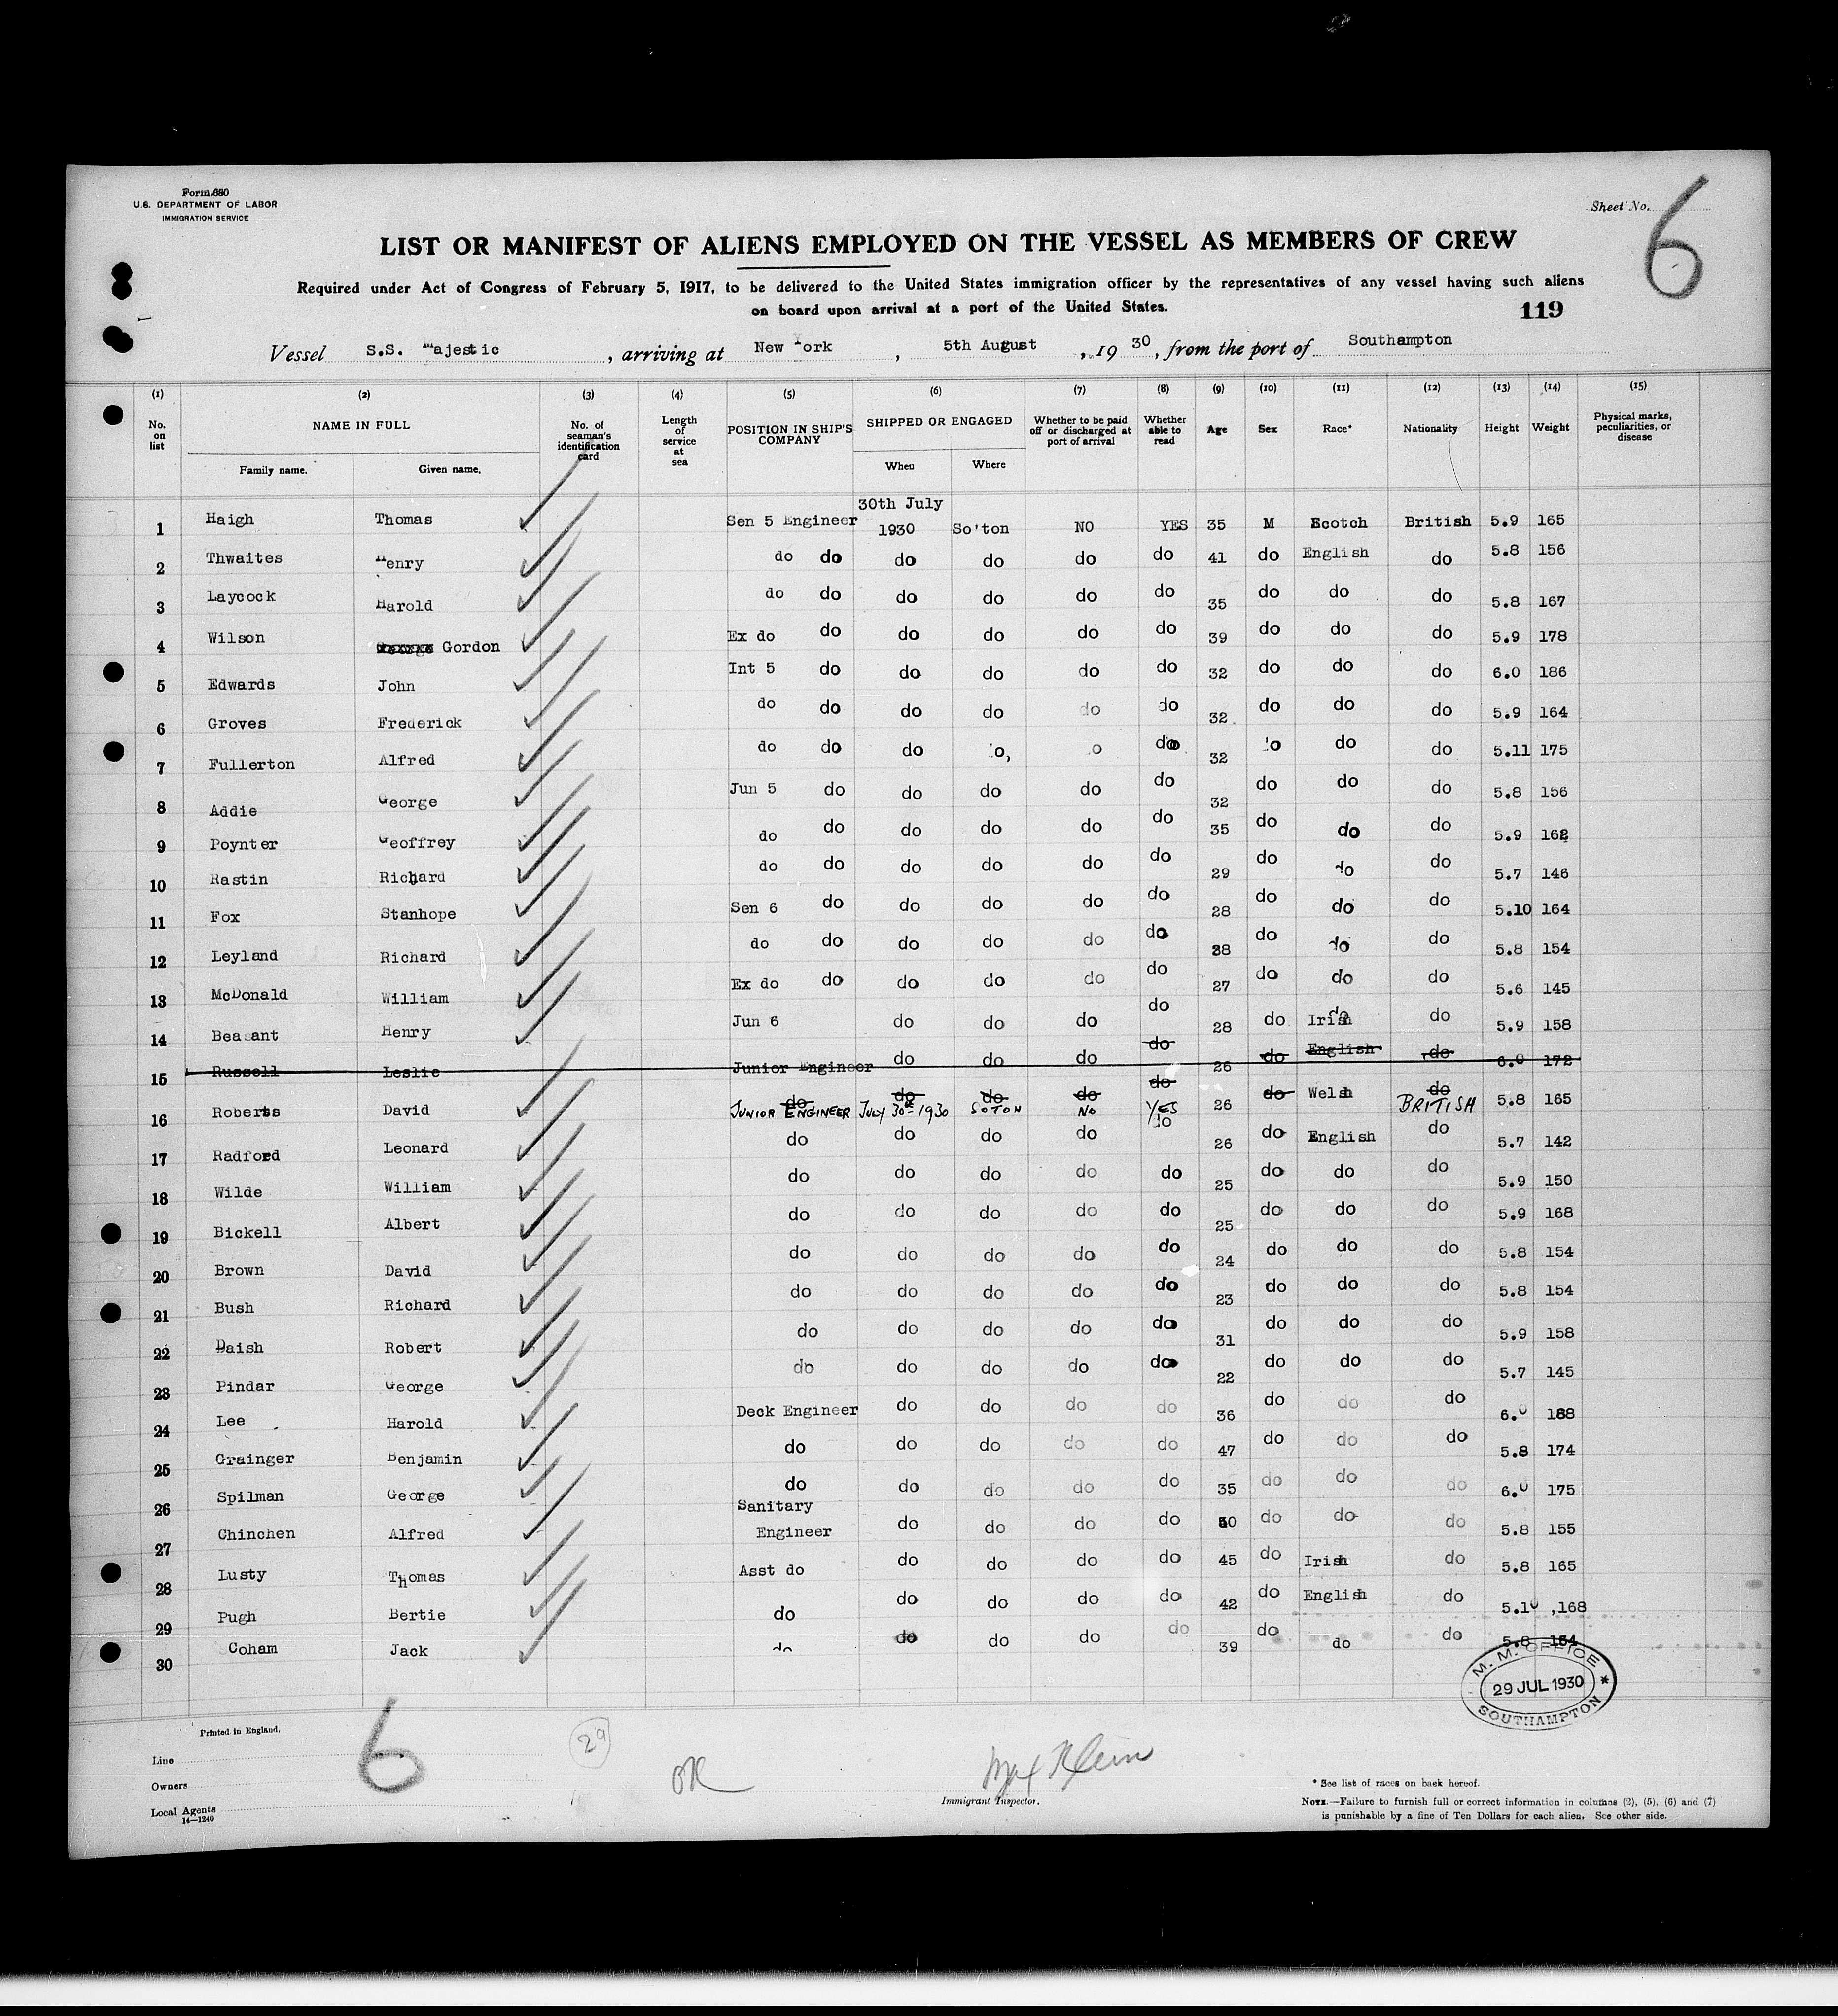 Form 680
U.S. DEPARTMENT OF LABOR
IMMIGRATION SERVICE
Sheet No. 6
LIST OR MANIFEST OF ALIENS EMPLOYED ON THE VESSEL AS MEMBERS OF CREW
Required under Act of Congress of February 5, 1917, to be delivered to the United States immigration officer by the representatives of any vessel having such aliens
on board upon arrival at a port of the United States.
119
Vessel S.S. Majestic, arriving at New York, 5th August, 1930, from the port of Southampton
(1) (2) (3) (4) (5) (6) (7) (8) (9) (10) (11) (12) (13) (14) (15)
No. on list NAME IN FULL Family name. Given name. No. of seaman's identification card Length of service at sea POSITION IN SHIP'S COMPANY SHIPPED OR ENGAGED When Where Whether to be paid off or discharged at port of arrival Whether able to read Age Sex Race* Nationality Height Weight Physical marks, peculiarities, or disease
1 Haigh Thomas Sen 5 Engineer 30th July 1930 So'ton NO YES 35 M Scotch British 5.9 165
2 Thwaites Henry do do do do do do 41 do English do 5.8 156
3 Laycock Harold do do do do do do 35 do do do 5.8 167
4 Wilson George Gordon Ex do do do do do do 39 do do do 5.9 178
5 Edwards John Int 5 do do do do do 32 do do do 6.0 186
6 Groves Frederick do do do do do do 32 do do do 5.9 164
7 Fullerton Alfred do do do do, do do 32 do do do 5.11 175
8 Addie George Jun 5 do do do do do 32 do do do 5.8 156
9 Poynter Geoffrey do do do do do do 35 do do do 5.9 162
10 Rastin Richard do do do do do do 29 do do do 5.7 146
11 Fox Stanhope Sen 6 do do do do do 28 do do do 5.10 164
12 Leyland Richard do do do do do do 38 do do do 5.8 154
13 McDonald William Ex do do do do do do 27 do do do 5.6 145
14 Beasant Henry Jun 6 do do do do 28 do Irish do 5.9 158
15 Russell Leslie Junior Engineer do do do do 26 do English do 6.0 172
16 Roberts David do JUNIOR ENGINEER do JULY 30th 1930 do SOTON do NO do YES 26 do Welsh do BRITISH 5.8 165
17 Radford Leonard do do do do do 26 do English do 5.7 142
18 Wilde William do do do do do 25 do do do 5.9 150
19 Bickell Albert do do do do do 25 do do do 5.9 168
20 Brown David do do do do do 24 do do do 5.8 154
21 Bush Richard do do do do do 23 do do do 5.8 154
22 Daish Robert do do do do do 31 do do do 5.9 158
23 Pindar George do do do do do 22 do do do 5.7 145
24 Lee Harold Deck Engineer do do do do 36 do do do 6.0 188
25 Grainger Benjamin do do do do do 47 do do do 5.8 174
26 Spilman George do do do do do 35 do do do 6.0 175
27 Chinchen Alfred Sanitary Engineer do do do do do do do 5.8 155
28 Lusty Thomas Asst do do do do do 45 do Irish do 5.8 165
29 Pugh Bertie do do do do do 42 do English do 5.10 ,168
30 Coham Jack do do do do do 39 do do do 5.8 154
M. M. OFFICE
29 JUL 1930
SOUTHAMPTON
Printed in England.
6
29
OK
Max Klein
Immigrant Inspector.
Line
Owners
Local Agents
14—1240
* See list of races on back hereof.
NOTE.—Failure to furnish full or correct information in columns (2), (5), (6) and (7)
is punishable by a fine of Ten Dollars for each alien. See other side.